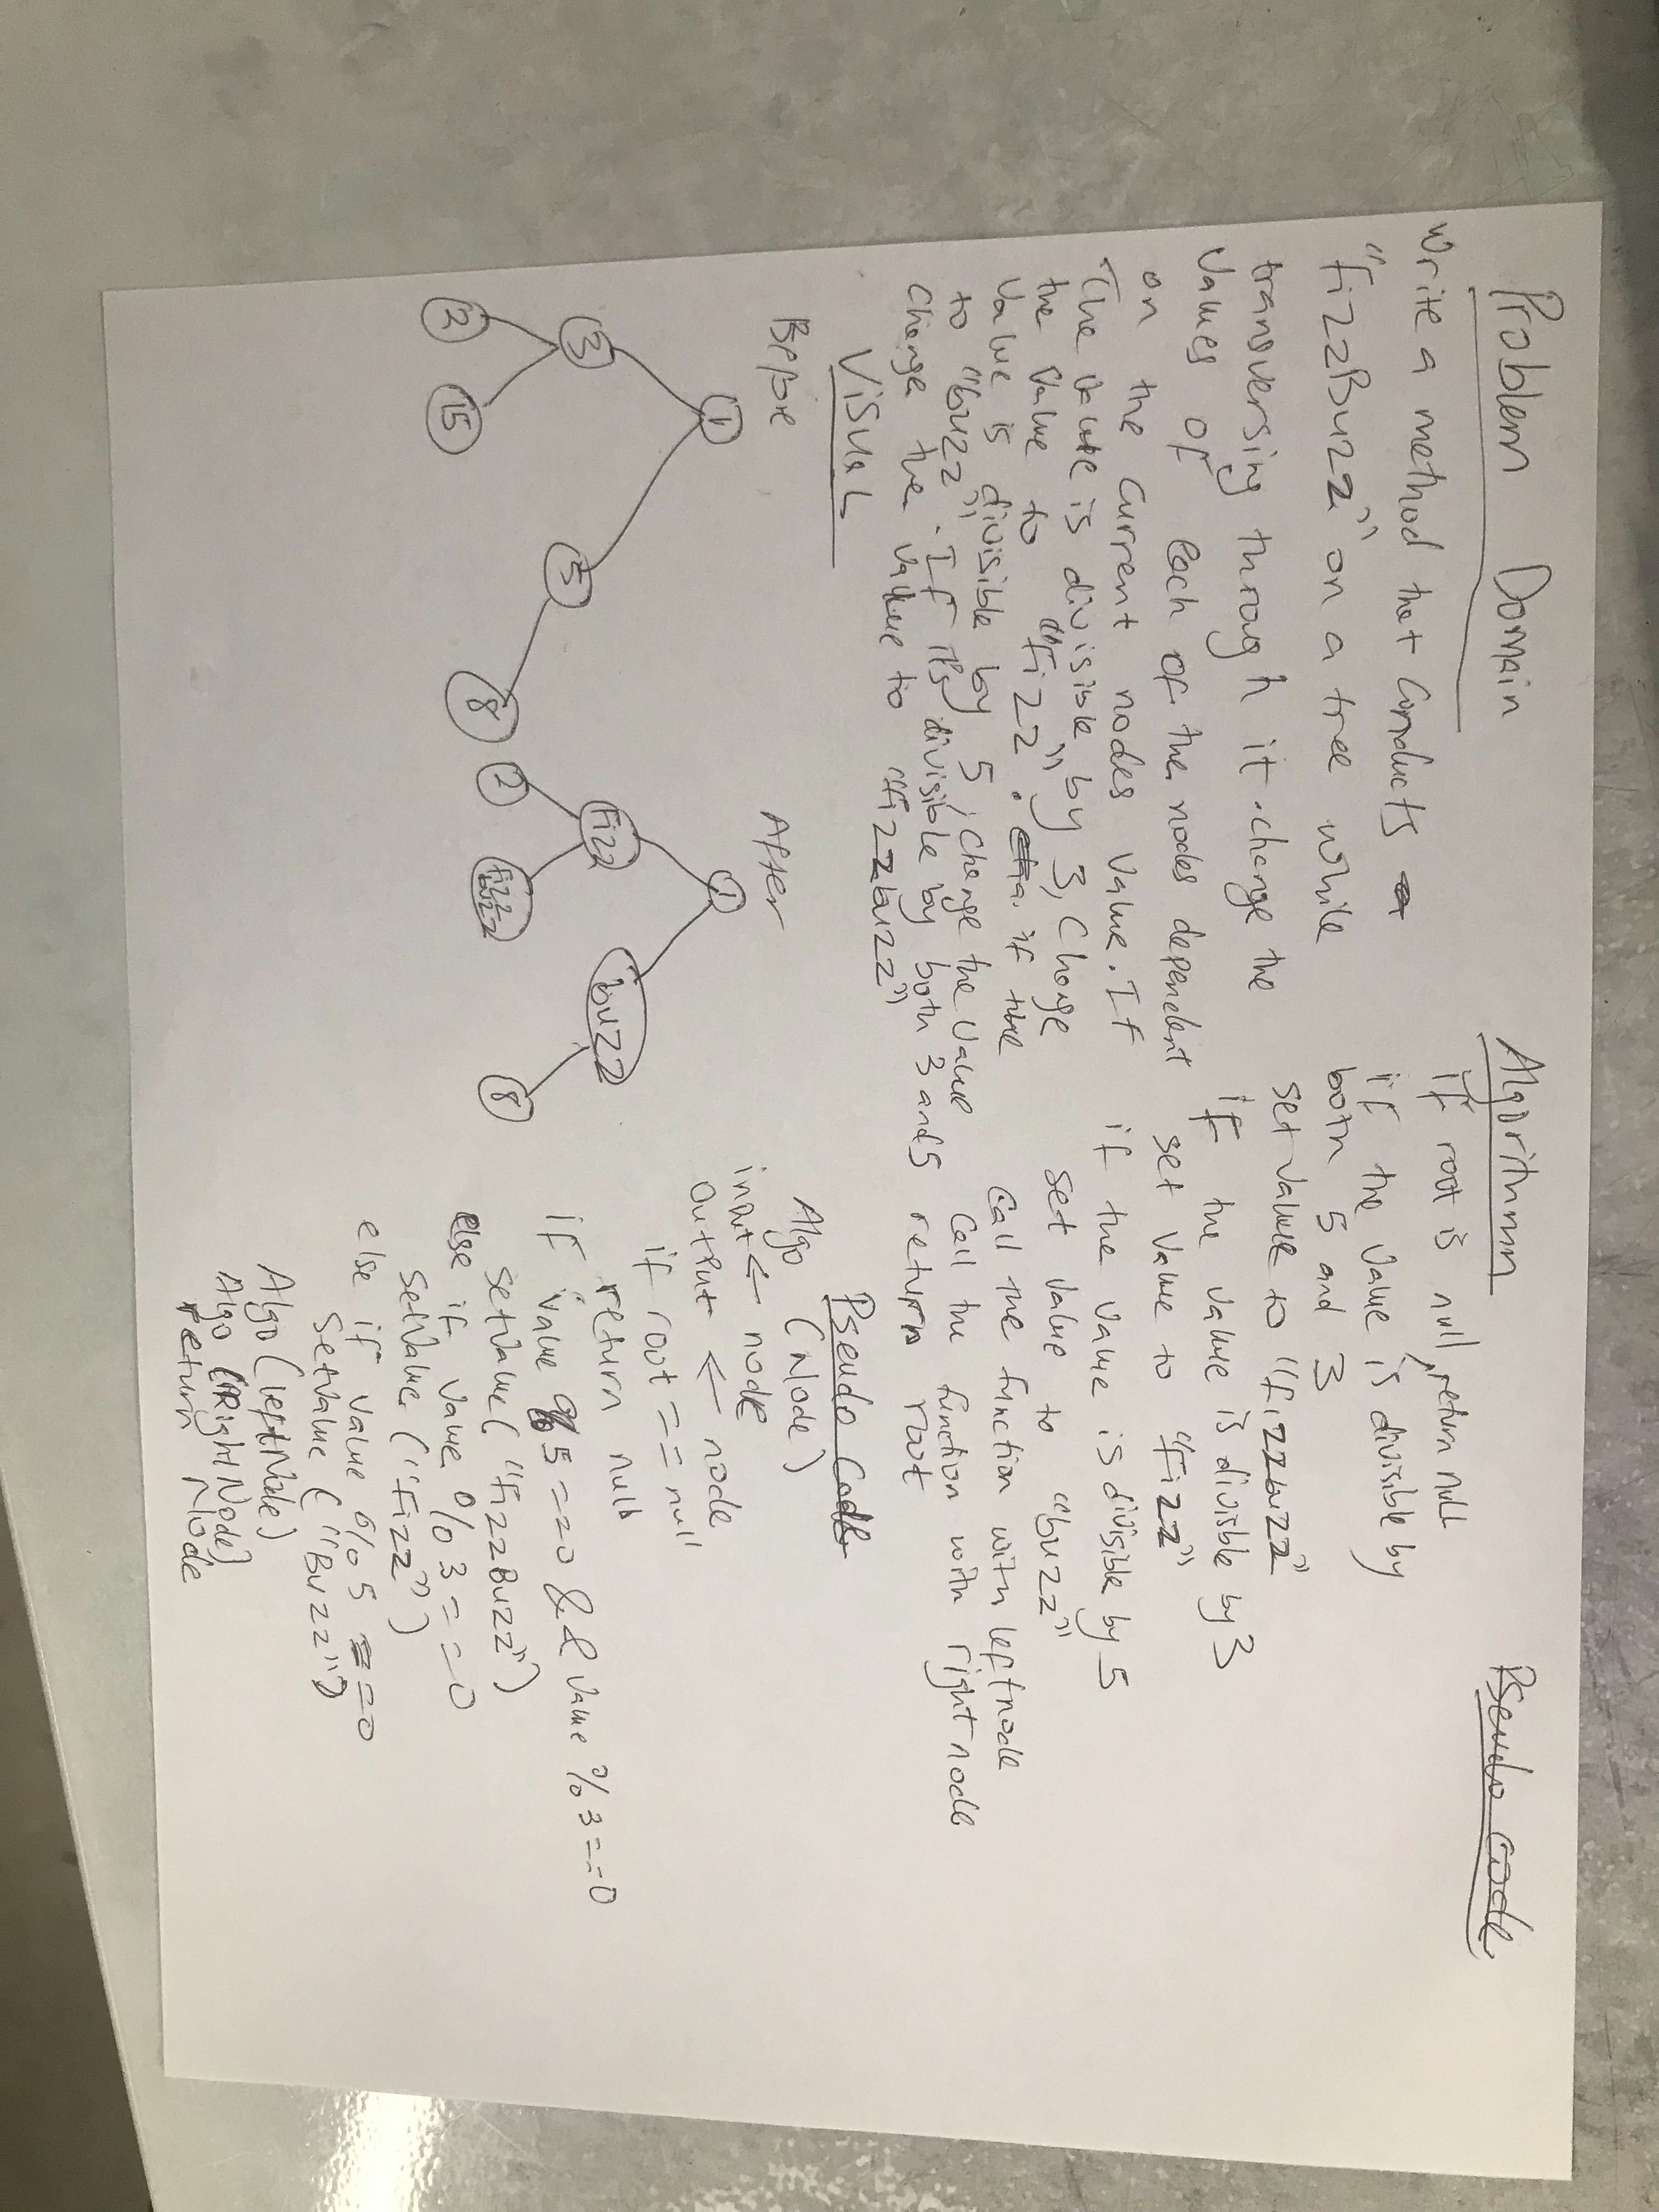 Problem Domain
Write a method that conducts a
"FizzBuzz" on a tree while
transversing through it. change the
values of each of the nodes dependent
on the current nodes value. If
the value is divisible by 3, change
the value to "Fizz". if the
value is divisible by 5, change the value
to "buzz". If its divisible by both 3 and 5
change the value to "fizzbuzz"
Visual
Before
1
3
5
2
15
8
After
1
Fizz
buzz
2
fizz
buzz
8
Algorithmm
if root is null, return null
if the value is divisible by
both 5 and 3
set value to "fizzbuzz"
if the value is divisible by 3
set value to "Fizz"
if the value is divisible by 5
set value to "buzz"
Call the function with left node
Call the function with right node
return root
Pseudo Code
Pseudo Code
Algo (Node)
input <- node
output <- node
if root == null
return null
if value % 5 == 0 && value % 3 == 0
setValue("FizzBuzz")
else if value % 3 == 0
setValue("Fizz")
else if value % 5 == 0
SetValue("Buzz")
Algo (leftNode)
Algo (RightNode)
return Node